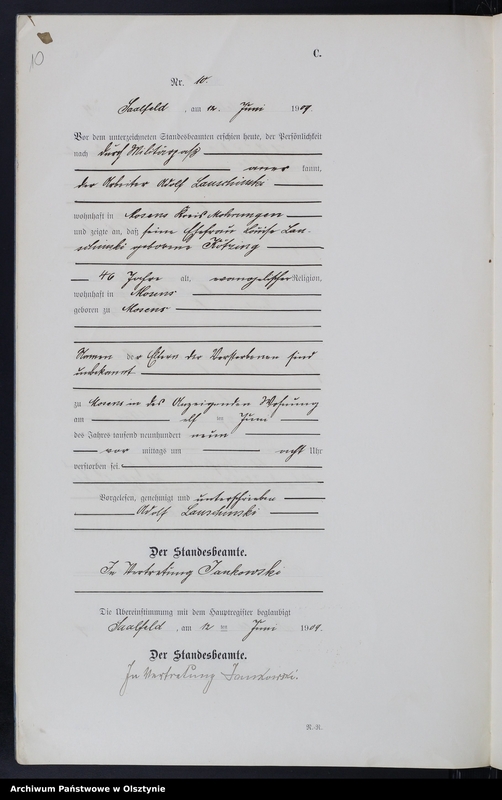 10
C.
Nr. 10.
Saalfeld, am 12. Juni 1909.
Vor dem unterzeichneten Standesbeamten erschien heute, der Persönlichkeit
nach durch Militärpaß
aner kannt,
der Arbeiter Adolf Lauschinski
wohnhaft in Mosens Kreis Mohrungen
und zeigte an, daß seine Ehefrau Louise Lau-
schinski geborene
46 Jahre alt, evangelischer Religion,
wohnhaft in Mosens
geboren zu Mosens
Namen der Eltern der Verstorbenen sind
unbekannt
zu Mosens in des Anzeigenden Wohnung
am elf ten Juni
des Jahres tausend neunhundert neun
vor mittags um acht Uhr
verstorben sei.
Vorgelesen, genehmigt und unterschrieben
Adolf Lauschinski
Der Standesbeamte.
In Vertretung Jankowski
Die Übereinstimmung mit dem Hauptregister beglaubigt
Saalfeld, am 12 ten Juni 1909.
Der Standesbeamte.
In Vertretung Jankowski.
Archiwum Państwowe w Olsztynie